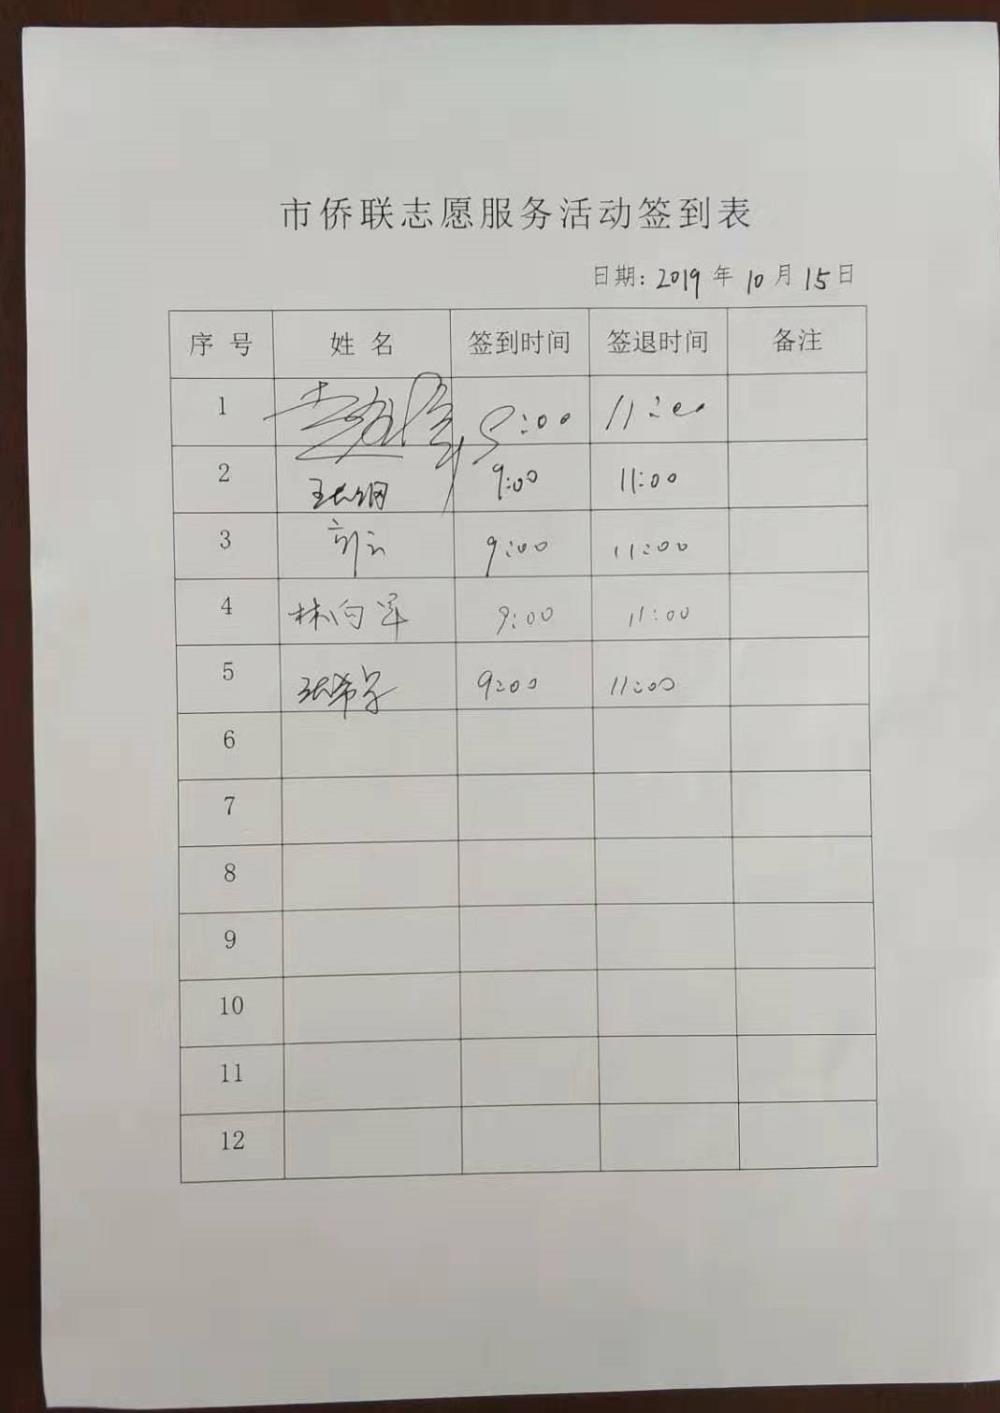 市侨联志愿服务活动签到表
日期: 2019 年 10 月 15 日
序 号 姓 名 签到时间 签退时间 备注
1 9:00 11:00
2 9:00 11:00
3 9:00 11:00
4 林向军 9:00 11:00
5 9:00 11:00
6
7
8
9
10
11
12